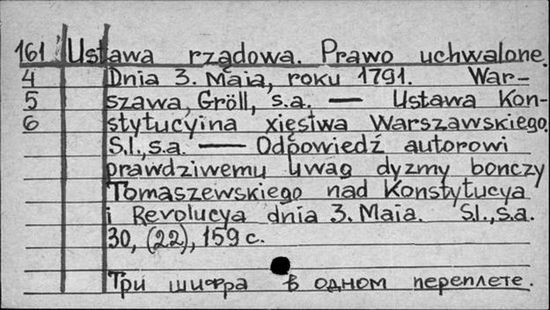 161 Ustawa rządowa. Prawo uchwalone.
4 Dnia 3. Maja, roku 1791. War-
5 szawa, Gröll, s.a. — Ustawa Kon-
6 stytucyina xięstwa Warszawskiego.
S.l., s.a. — Odpowiedź autorowi
prawdziwemu uwag dyzmy bonczy
Tomaszewskiego nad Konstytucya
i Revolucya dnia 3. Maia. S.l., s.a.
30, (22), 159 с.
Три шифра в одном переплете.